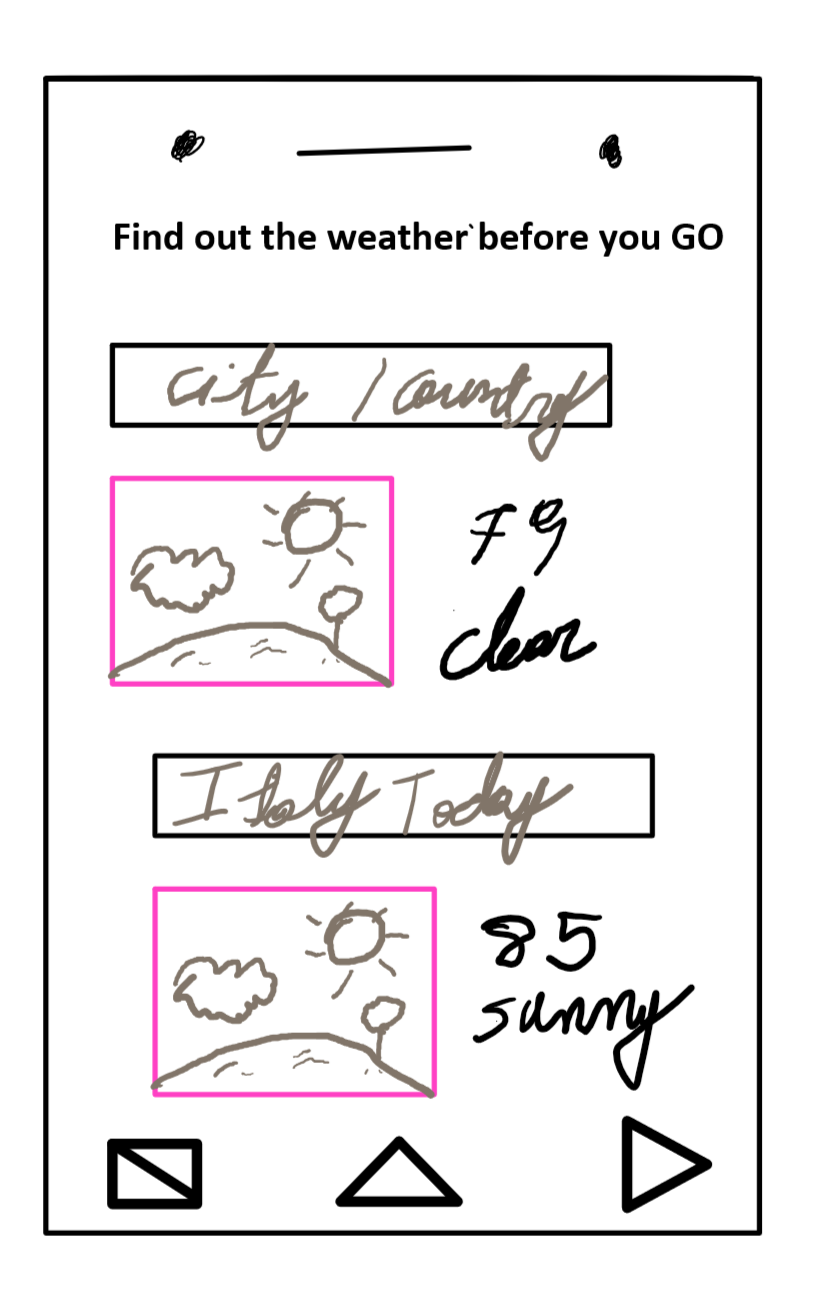 Find out the weather before you GO
City / Country
79
clear
Italy Today
85
sunny